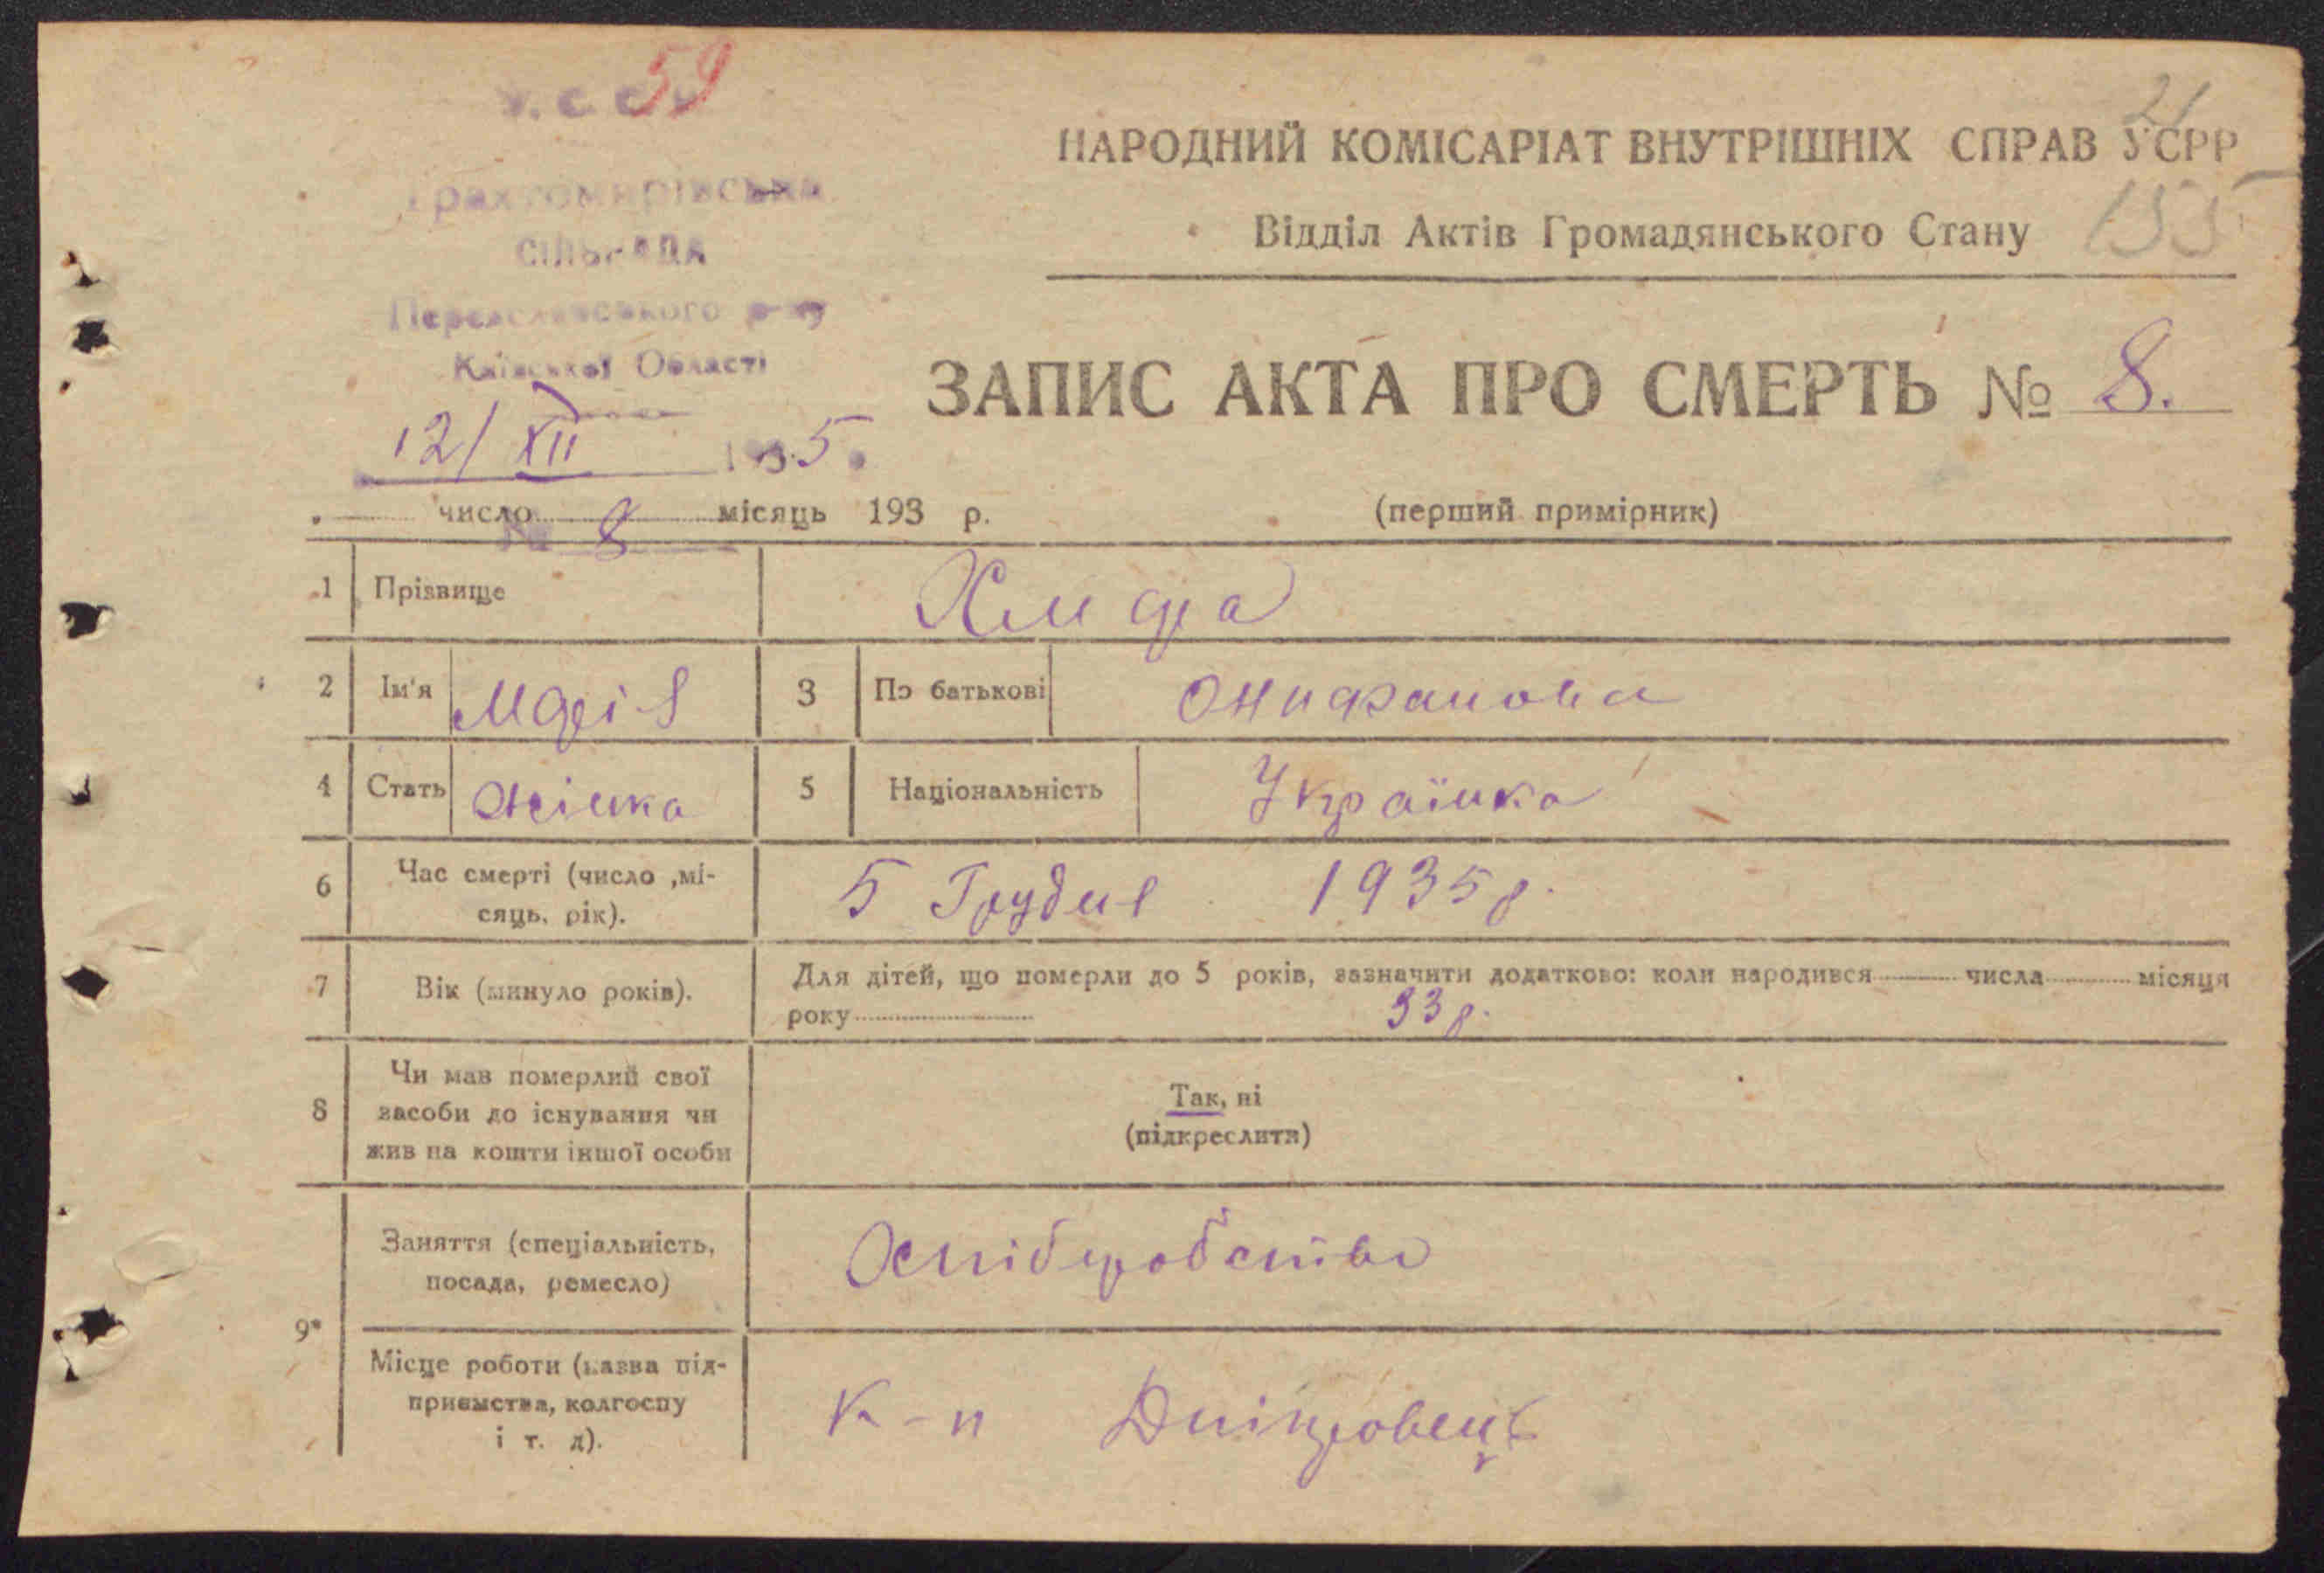 59
У.С.С.Р.
Трахтомирівська
СІЛЬРАДА
Переяславського р-ну
Київської Області
12/XII 1935
№ 8
21
НАРОДНИЙ КОМІСАРІАТ ВНУТРІШНІХ СПРАВ УСРР
Відділ Актів Громадянського Стану
155
ЗАПИС АКТА ПРО СМЕРТЬ № 8.
число місяць 193 р.
(перший примірник)
1 Прізвище
2 Ім'я Марія 3 По батькові Онифанова
4 Стать жінка 5 Національність Українка
6 Час смерті (число ,мі-
сяць, рік).
5 Грудня 1935 р.
7 Вік (минуло років).
Для дітей, що померли до 5 років, зазначити додатково: коли народився числа місяця
року 33 р.
8 Чи мав померлий свої
засоби до існування чи
жив на кошти іншої особи
Так, ні
(підкреслити)
9*
Заняття (спеціальність,
посада, ремесло)
Хліборобство
Місце роботи (назва під-
приємства, колгоспу
і т. д).
К-п Дніпровець